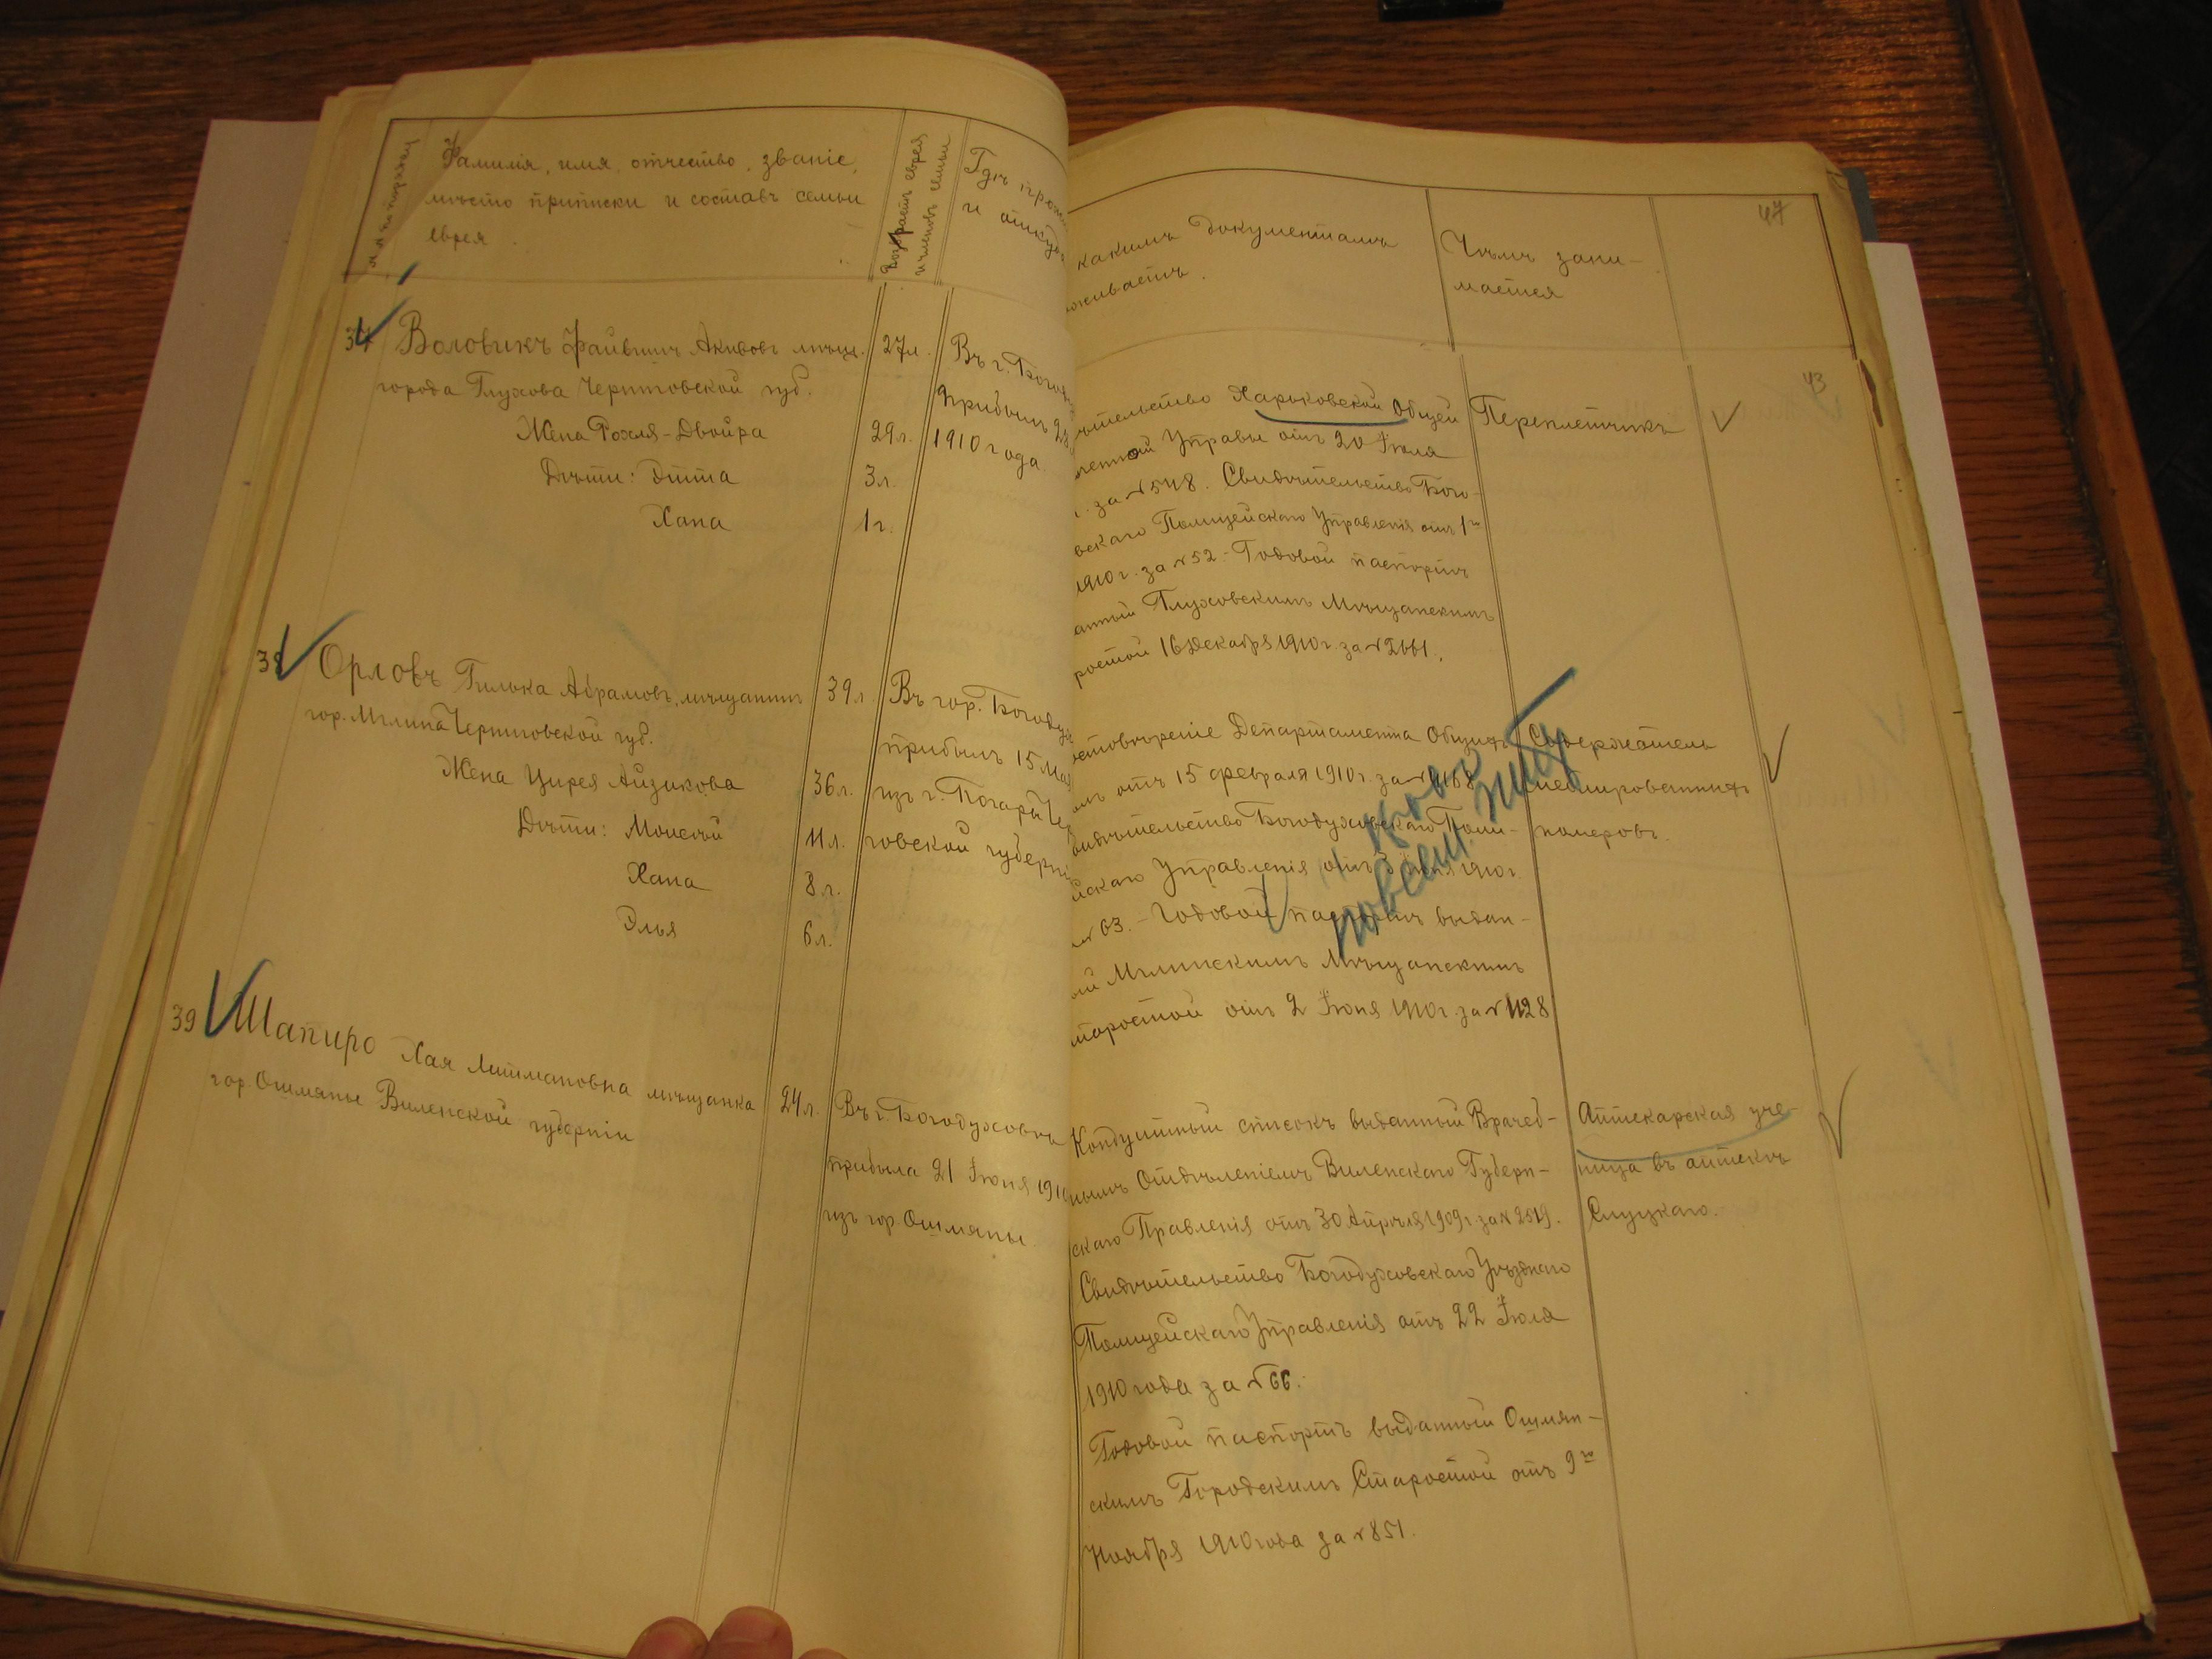 №№ по порядку
Фамилія, имя, отчество, званіе,
мѣсто приписки и составъ семьи
еврея.
Возрастъ еврея
и членовъ семьи
Гдѣ прож
и откуда
какимъ документамъ
живаетъ.
Чѣмъ зани-
мается
47
43
37 Воловикъ Файвишъ Акивовъ мѣщ.
города Глухова Черниговской губ.
Жена Рохля-Двойра
Дѣти: Этта
Хана
27л.
29л.
3л.
1г.
Въ г. Богод
прибылъ 28
1910 года.
ѣтельство Харьковской Общей
Управы отъ 20 Іюля
г. за №548. Свидѣтельство Бого-
вскаго Полицейскаго Управленія отъ 1го
1910г. за №52. Годовой паспортъ
анный Глуховскимъ Мѣщанскимъ
ростой 16 Декабря 1910г. за №2661.
Переплетчикъ
38 Орловъ Гилька Абрамовъ, мѣщанинъ
гор. Мглина Черниговской губ.
Жена Цирея Айзикова
Дѣти: Моисей
Хана
Элья
39л.
36л.
11л.
8л.
6л.
Въ гор. Богодух
прибылъ 15 Мая
изъ г. Погара Чер
говской губерні
стовѣреніе Департамента Общихъ
лъ отъ 15 февраля 1910г. за №4168
видѣтельство Богодуховскаго Поли-
йскаго Управленія отъ 3 1910г.
№63. - Годовой паспортъ выдан-
ый Мглинскимъ Мѣщанскимъ
таростой отъ 2 Іюня 1910г. за №1128
Содержатель
меблированныхъ
номеровъ.
39 Шапиро Хая Литмановна мѣщанка
гор. Ошмяны Виленской губерніи
24л.
Въ г. Богодуховъ
прибыла 21 Іюня 1910
изъ гор. Ошмяны.
Кондуитный списокъ выданный Врачеб-
нымъ Отдѣленіемъ Виленскаго Губерн-
скаго Правленія отъ 30 Апрѣля 1909г. за №2519.
Свидѣтельство Богодуховскаго Уѣзднаго
Полицейскаго Управленія отъ 22 Іюля
1910 года за №66.
Годовой паспортъ выданный Ошмян-
скимъ Городскимъ Старостой отъ 9го
Ноября 1910 года за №851.
Аптекарская уче-
ница въ аптекѣ
Слуцкаго.